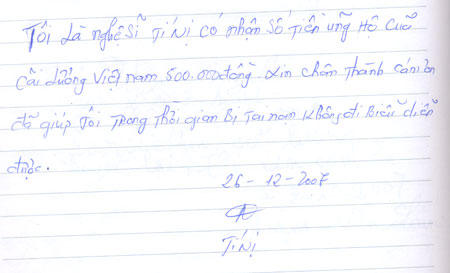 Tôi là nghệ sĩ Tí Nị có nhận số tiền ủng Hộ Cuả
Cải Lương Việt nam 500.000đồng. Xin chân Thành cám ơn
đã giúp Tôi Trong Thời gian Bị Tai nạn không đi Biểu diễn
được.
26 - 12 - 2007
Tí Nị